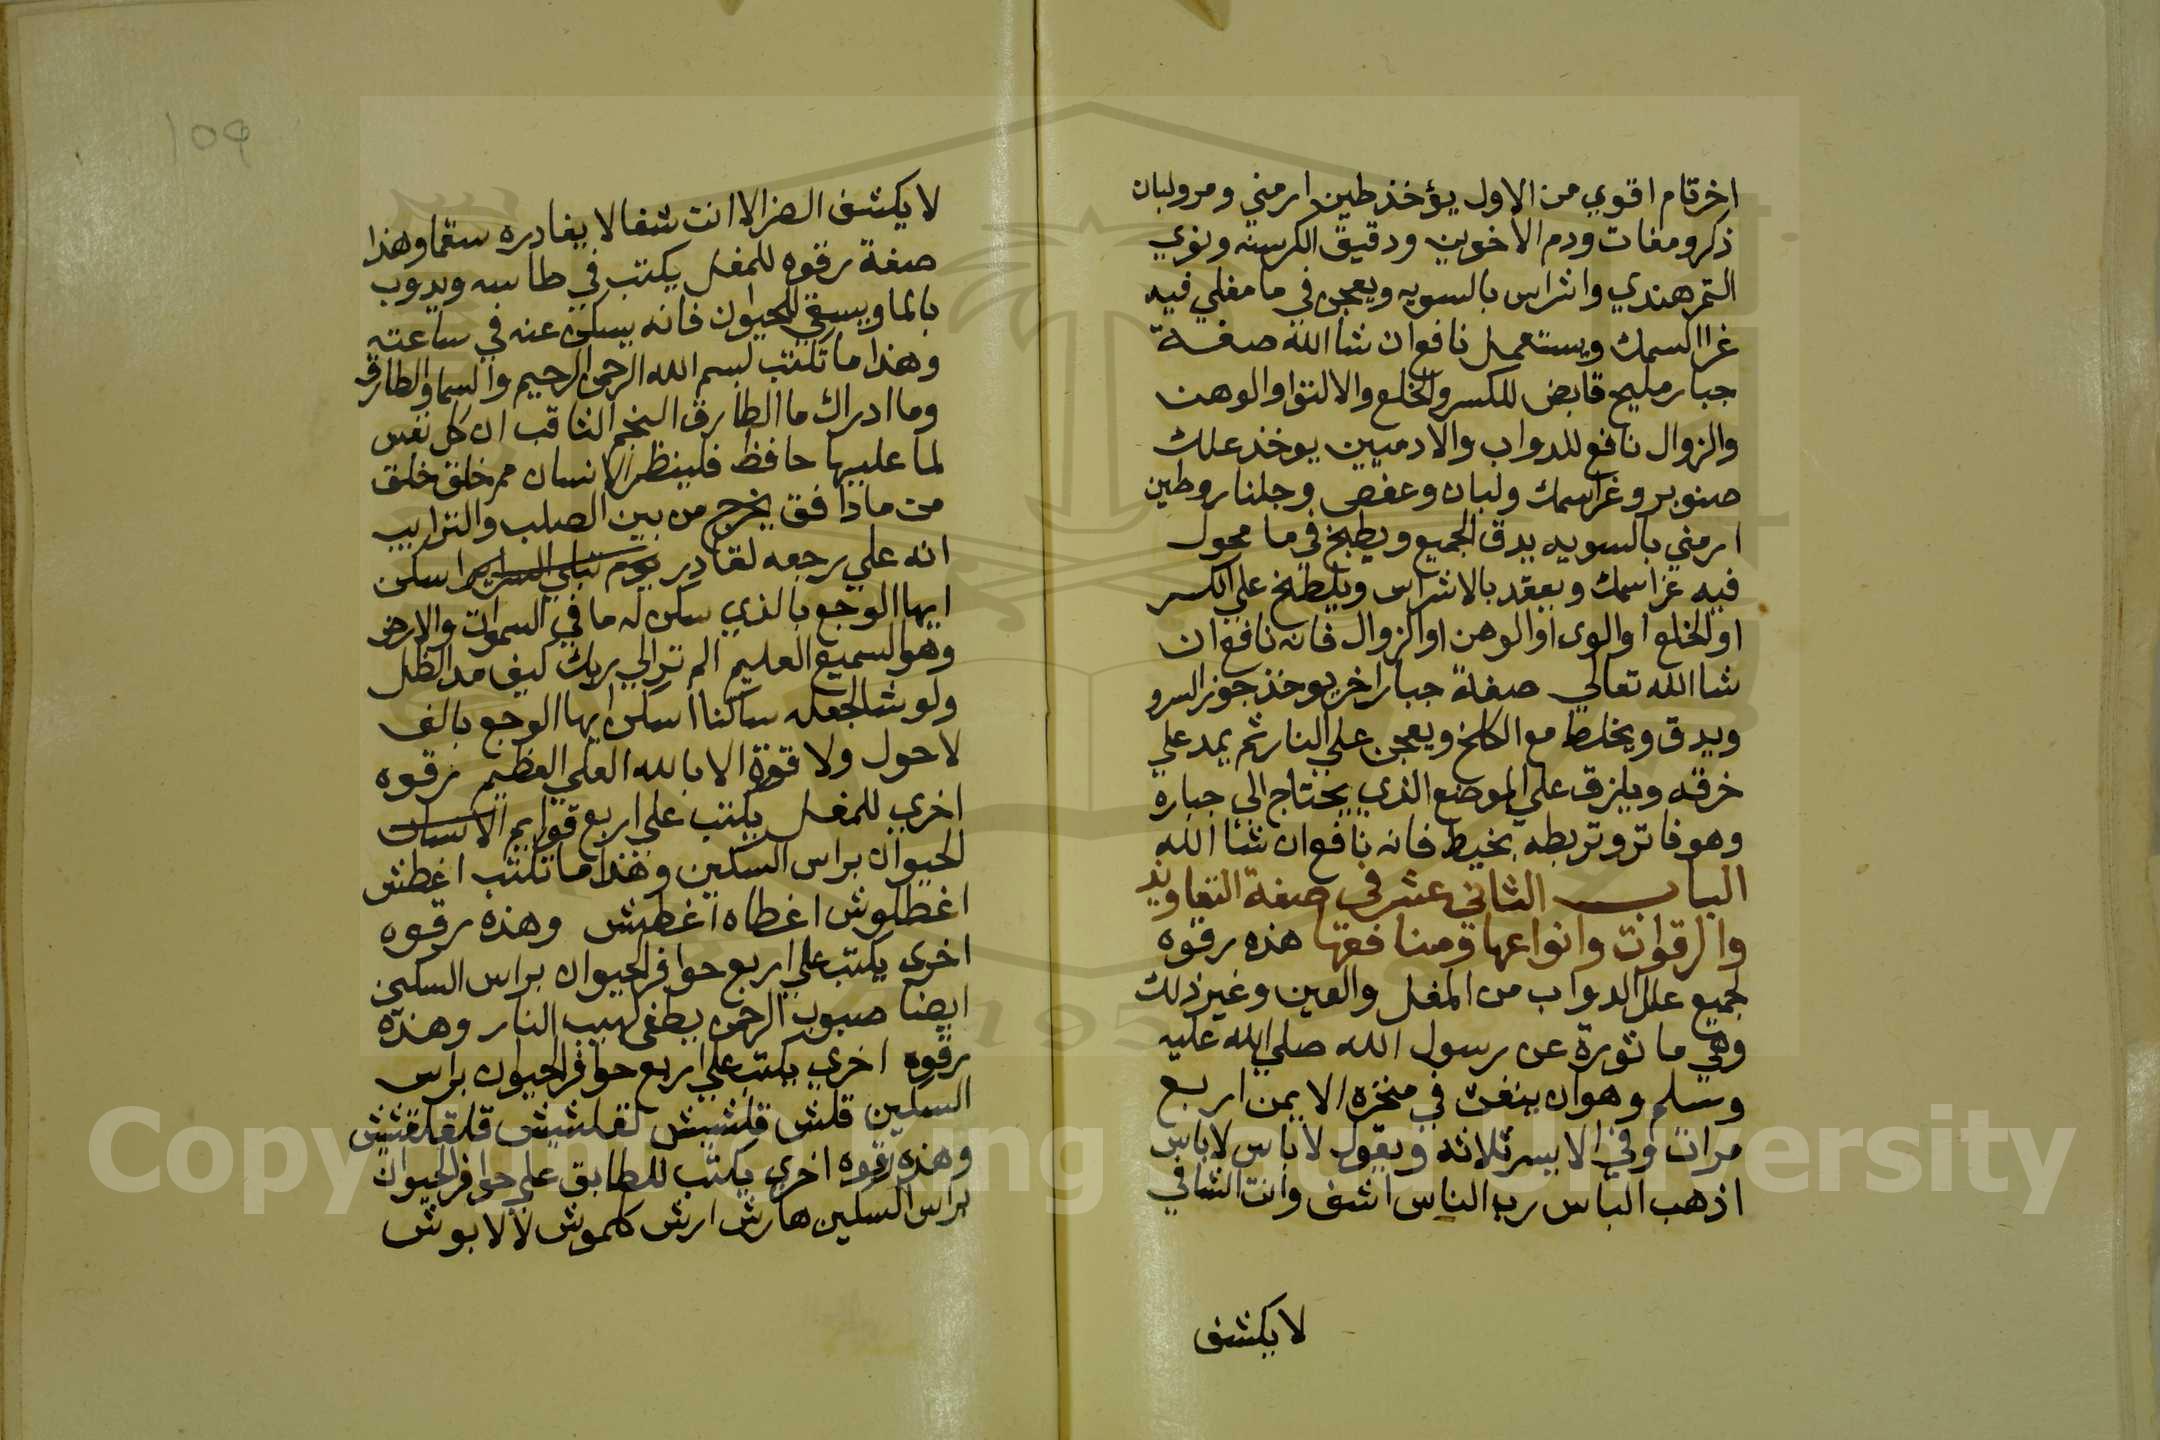 اخر تام اقوي من الاول يؤخذ طين ارمني ومر ولبان
ذكر ومغات ودم الاخوين ودقيق الكرسنه ونوي
التمر هندي واشراس بالسويه ويعجن في ما مغلي فيه
غرا السمك ويستعمل نافع ان شا الله صفة
جبار مليح قابض للكسر والخلع والالتوا والوهن
والزوال نافع للدواب والادميين يوخذ علك
صنوبر وغراسمك ولبان وعفص وجلنار وطين
ارمني بالسويه يدق الجميع ويطبخ في ما محول
فيه غراسمك ويعقد بالاشراس ويلطخ علي الكسر
او الخلع او الوى او الوهن او الزوال فانه نافع ان
شا الله تعالي صفة جبار اخر يوخذ جوز السرو
ويدق ويخلط مع الكلخ ويعجن علي النار ثم يمد علي
خرقه ويلزق علي الموضع الذي يحتاج الي جباره
وهو فاتر وتربطه بخيط فانه نافع ان شا الله
الباب الثاني عشر في صفة التعاويذ
والرقوات وانواعها ومنافعها هذه رقوه
لجميع علل الدواب من المغل والعين وغير ذلك
وهي ماثورة عن رسول الله صلي الله عليه
وسلم وهو ان ينفث في منخره الايمن اربع
مرات وفي الايسر ثلاثه ويقول لا باس لا باس
اذهب الباس رب الناس اشف وانت الشافي
لا يكشف
109
لا يكشف الضر الا انت شفا لا يغادره سقما وهذا
صفة رقوه للمغل يكتب في طاسه ويدوب
بالما ويسقي للحيوان فانه يسكن عنه في ساعته
وهذا ما تكتب بسم الله الرحمن الرحيم والسما والطارق
وما ادراك ما الطارق النجم الثاقب ان كل نفس
لما عليها حافظ فلينظر الانسان مم خلق خلق
من ما دافق يخرج من بين الصلب والترايب
انه علي رجعه لقادر يوم تبلي السراير اسكن
ايها الوجع بالذي سكن له ما في السموات والارض
وهو السميع العليم الم تر الي ربك كيف مد الظل
ولو شا لجعله ساكنا اسكن ايها الوجع بالف
لا حول ولا قوة الا بالله العلي العظيم رقوه
اخري للمغل يكتب علي اربع قوايم الانسان
الحيوان براس السكين وهذا ما تكتب اغطش
اغطلوش اغطاه اغطيش وهذه رقوه
اخرى يكتب علي اربع حوافر الحيوان براس السكين
ايضا صبوب الرحمن يطفي لهيب النار وهذه
رقوه اخري يكتب علي اربع حوافر الحيوان براس
السكين قلش قلشيش لقلشيش قلقلقشش
وهذه رقوه اخري يكتب للمطابق علي حوافر الحيوان
براس السكين هارش ارش كلموش لالابوش